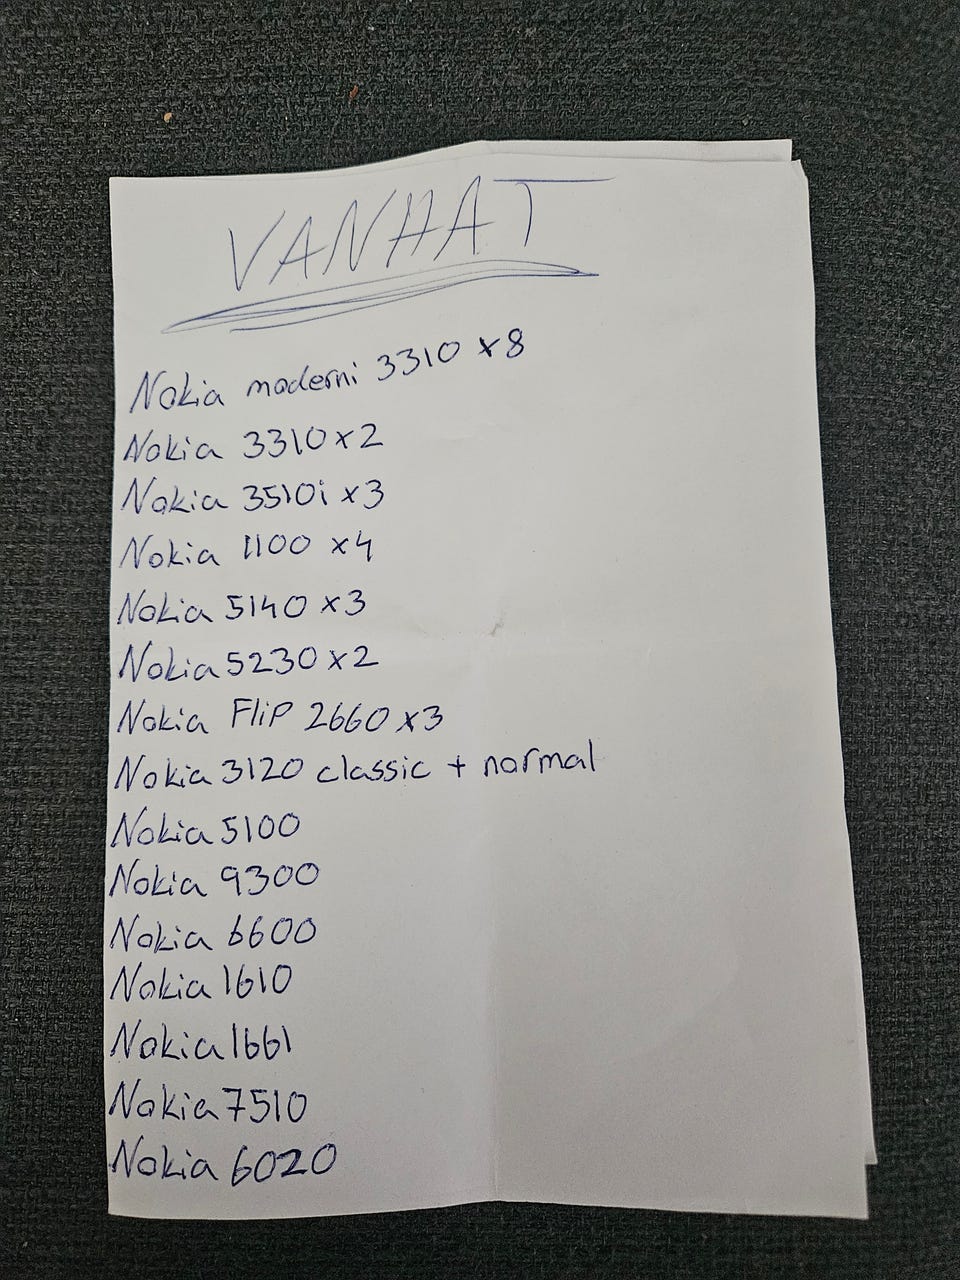 VANHAT
Nokia moderni 3310 x8
Nokia 3310x2
Nokia 3510i x3
Nokia 1100 x4
Nokia 5140 x3
Nokia 5230x2
Nokia Flip 2660x3
Nokia 3120 classic + normal
Nokia 5100
Nokia 9300
Nokia 6600
Nokia 1610
Nokia 1661
Nokia 7510
Nokia 6020